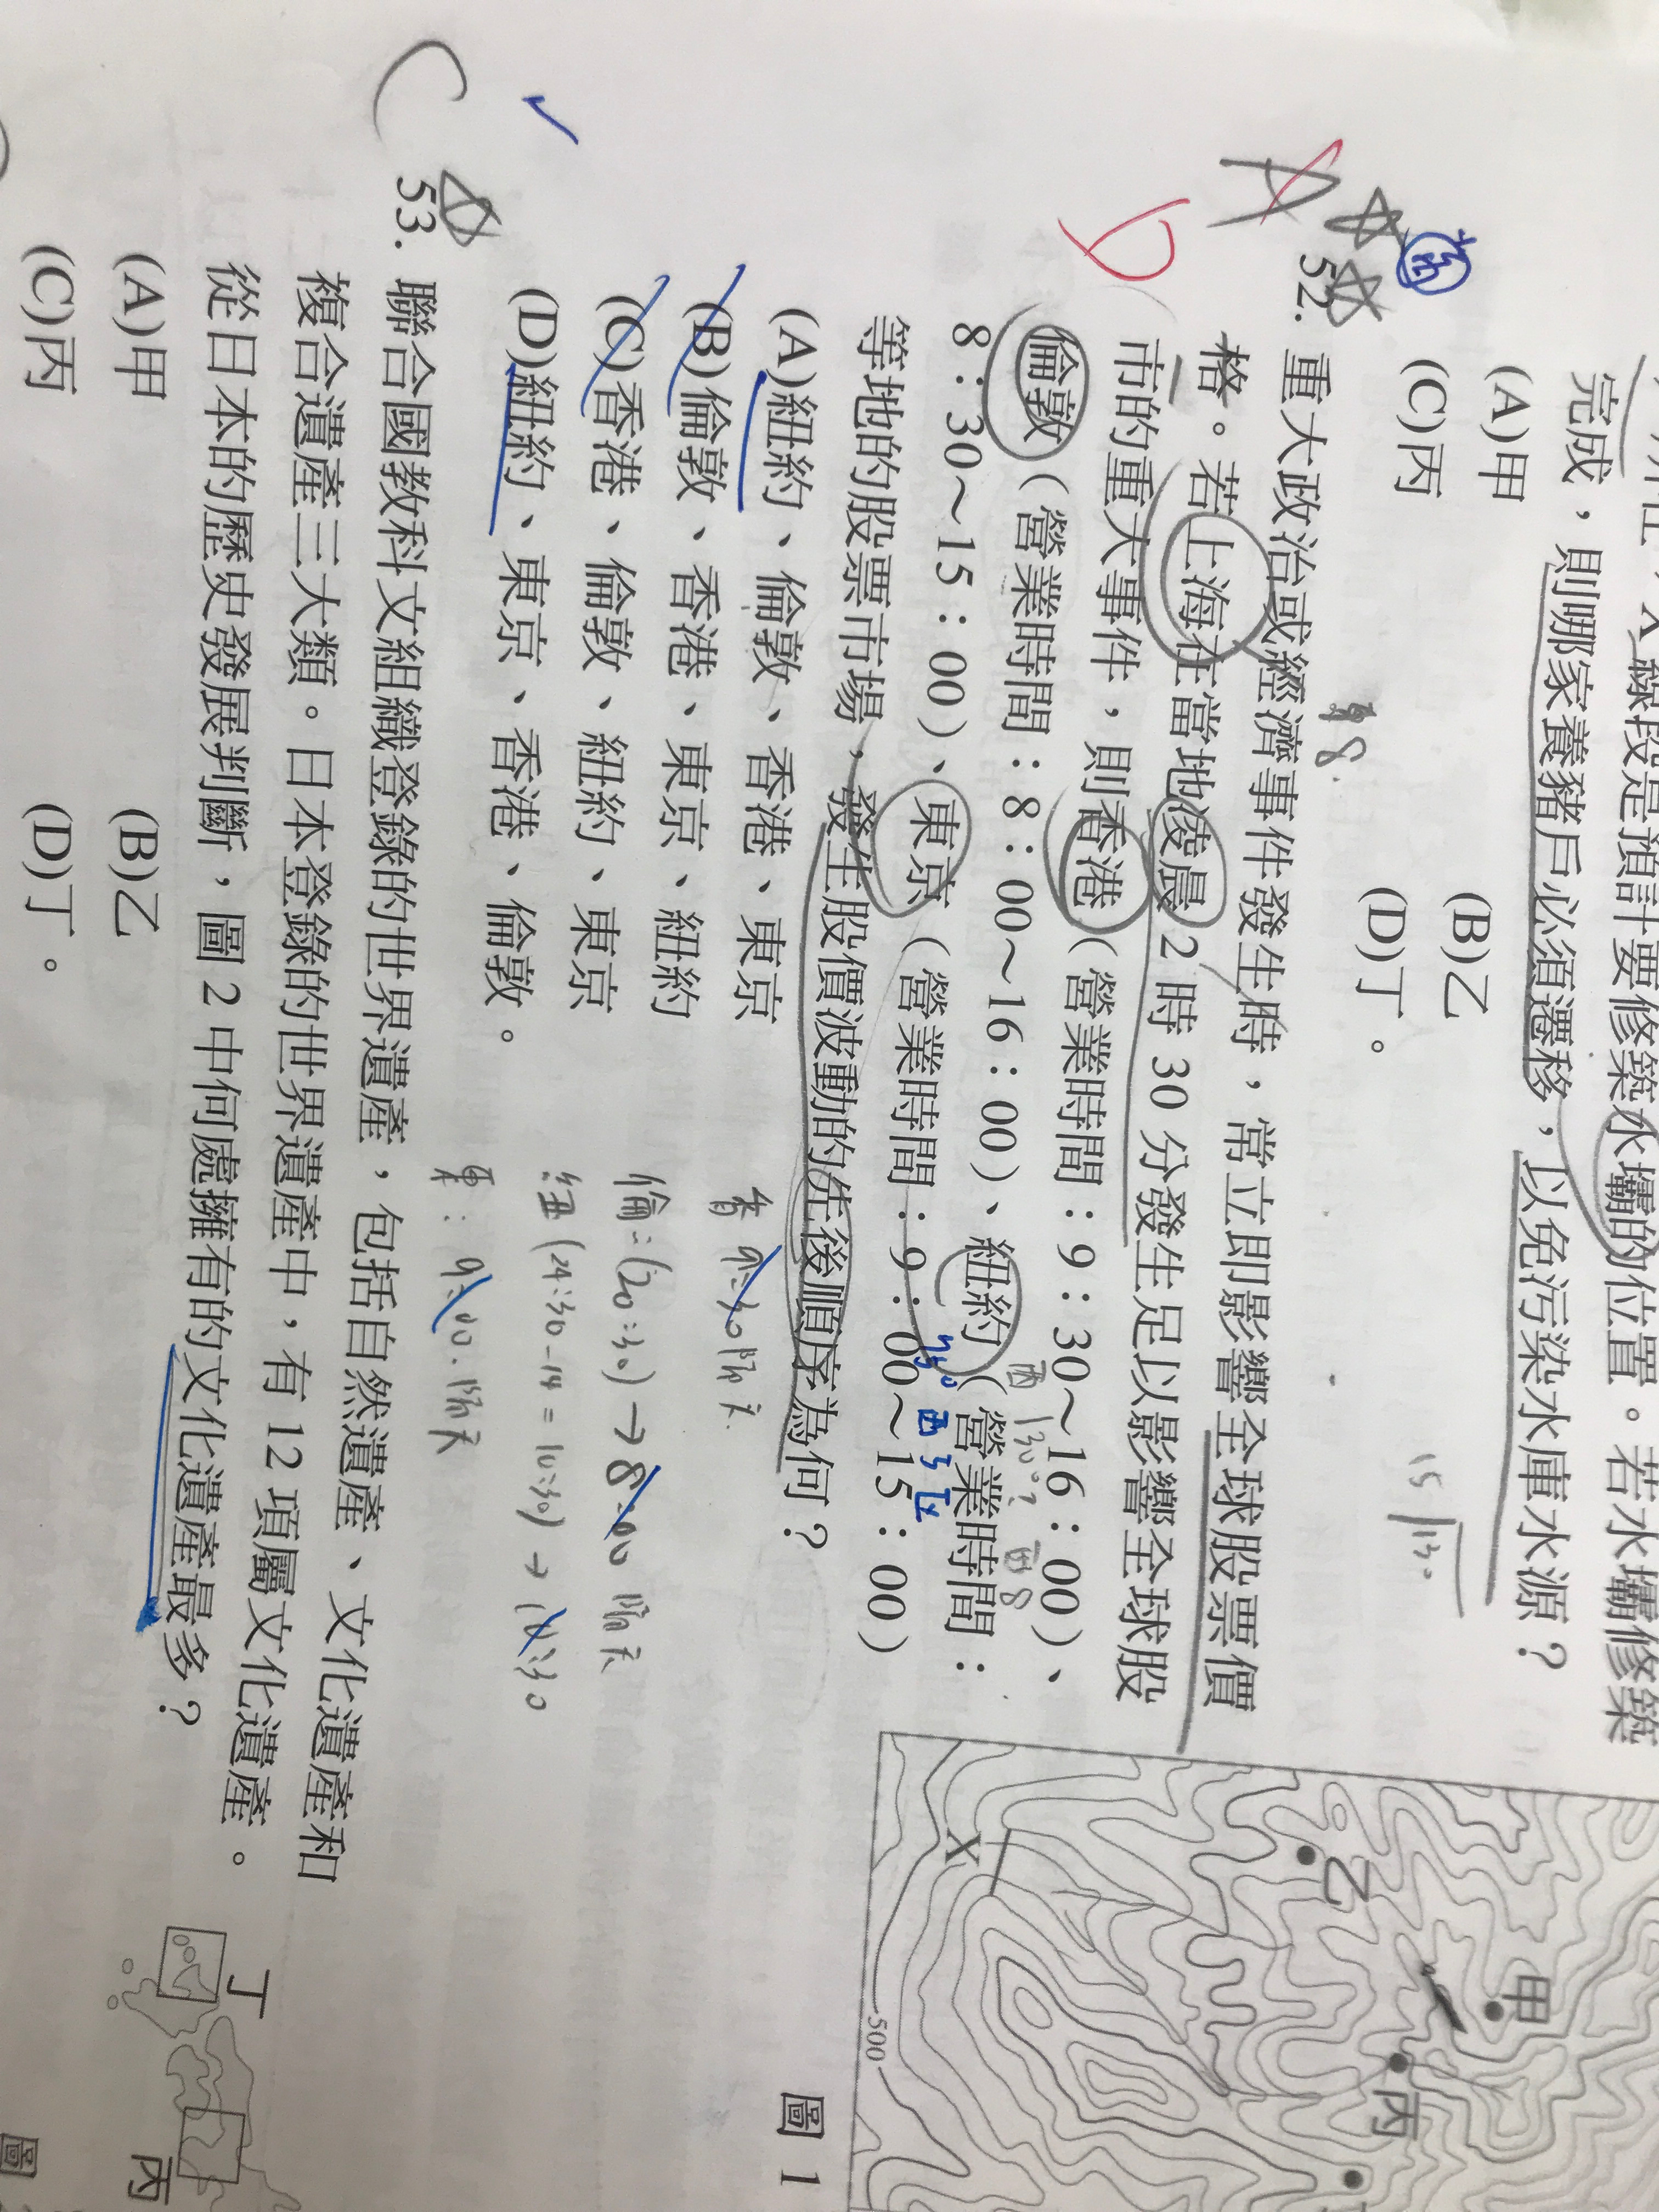 完成，則哪家養豬戶必須遷移，以免污染水庫水源？
(A)甲 (B)乙
(C)丙 (D)丁。
52. 重大政治或經濟事件發生時，常立即影響全球股票價
格。若上海在當地凌晨 2 時 30 分發生足以影響全球股
市的重大事件，則香港（營業時間：9：30～16：00）、
倫敦（營業時間：8：00～16：00）、紐約（營業時間：
8：30～15：00）、東京（營業時間：9：00～15：00）
等地的股票市場，發生股價波動的先後順序為何？
(A)紐約、倫敦、香港、東京
(B)倫敦、香港、東京、紐約
(C)香港、倫敦、紐約、東京
(D)紐約、東京、香港、倫敦。
香 9:30 隔天
倫:(20:30)→8:00 隔天
紐(24:30-14=10:30)→10:30
東:9:00.隔天
53. 聯合國教科文組織登錄的世界遺產，包括自然遺產、文化遺產和
複合遺產三大類。日本登錄的世界遺產中，有 12 項屬文化遺產。
從日本的歷史發展判斷，圖 2 中何處擁有的文化遺產最多？
(A)甲 (B)乙
(C)丙 (D)丁。
甲
乙
丙
X
500
圖 1
丁
丙
圖
A
D
C
15